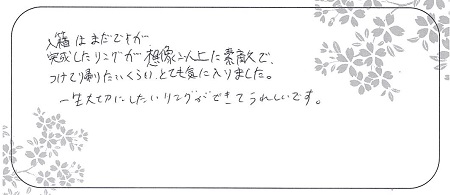 入籍はまだですが、
完成したリングが想像以上に素敵で、
つけて帰りたいくらい、とても気に入りました。
一生大切にしたいリングができてうれしいです。